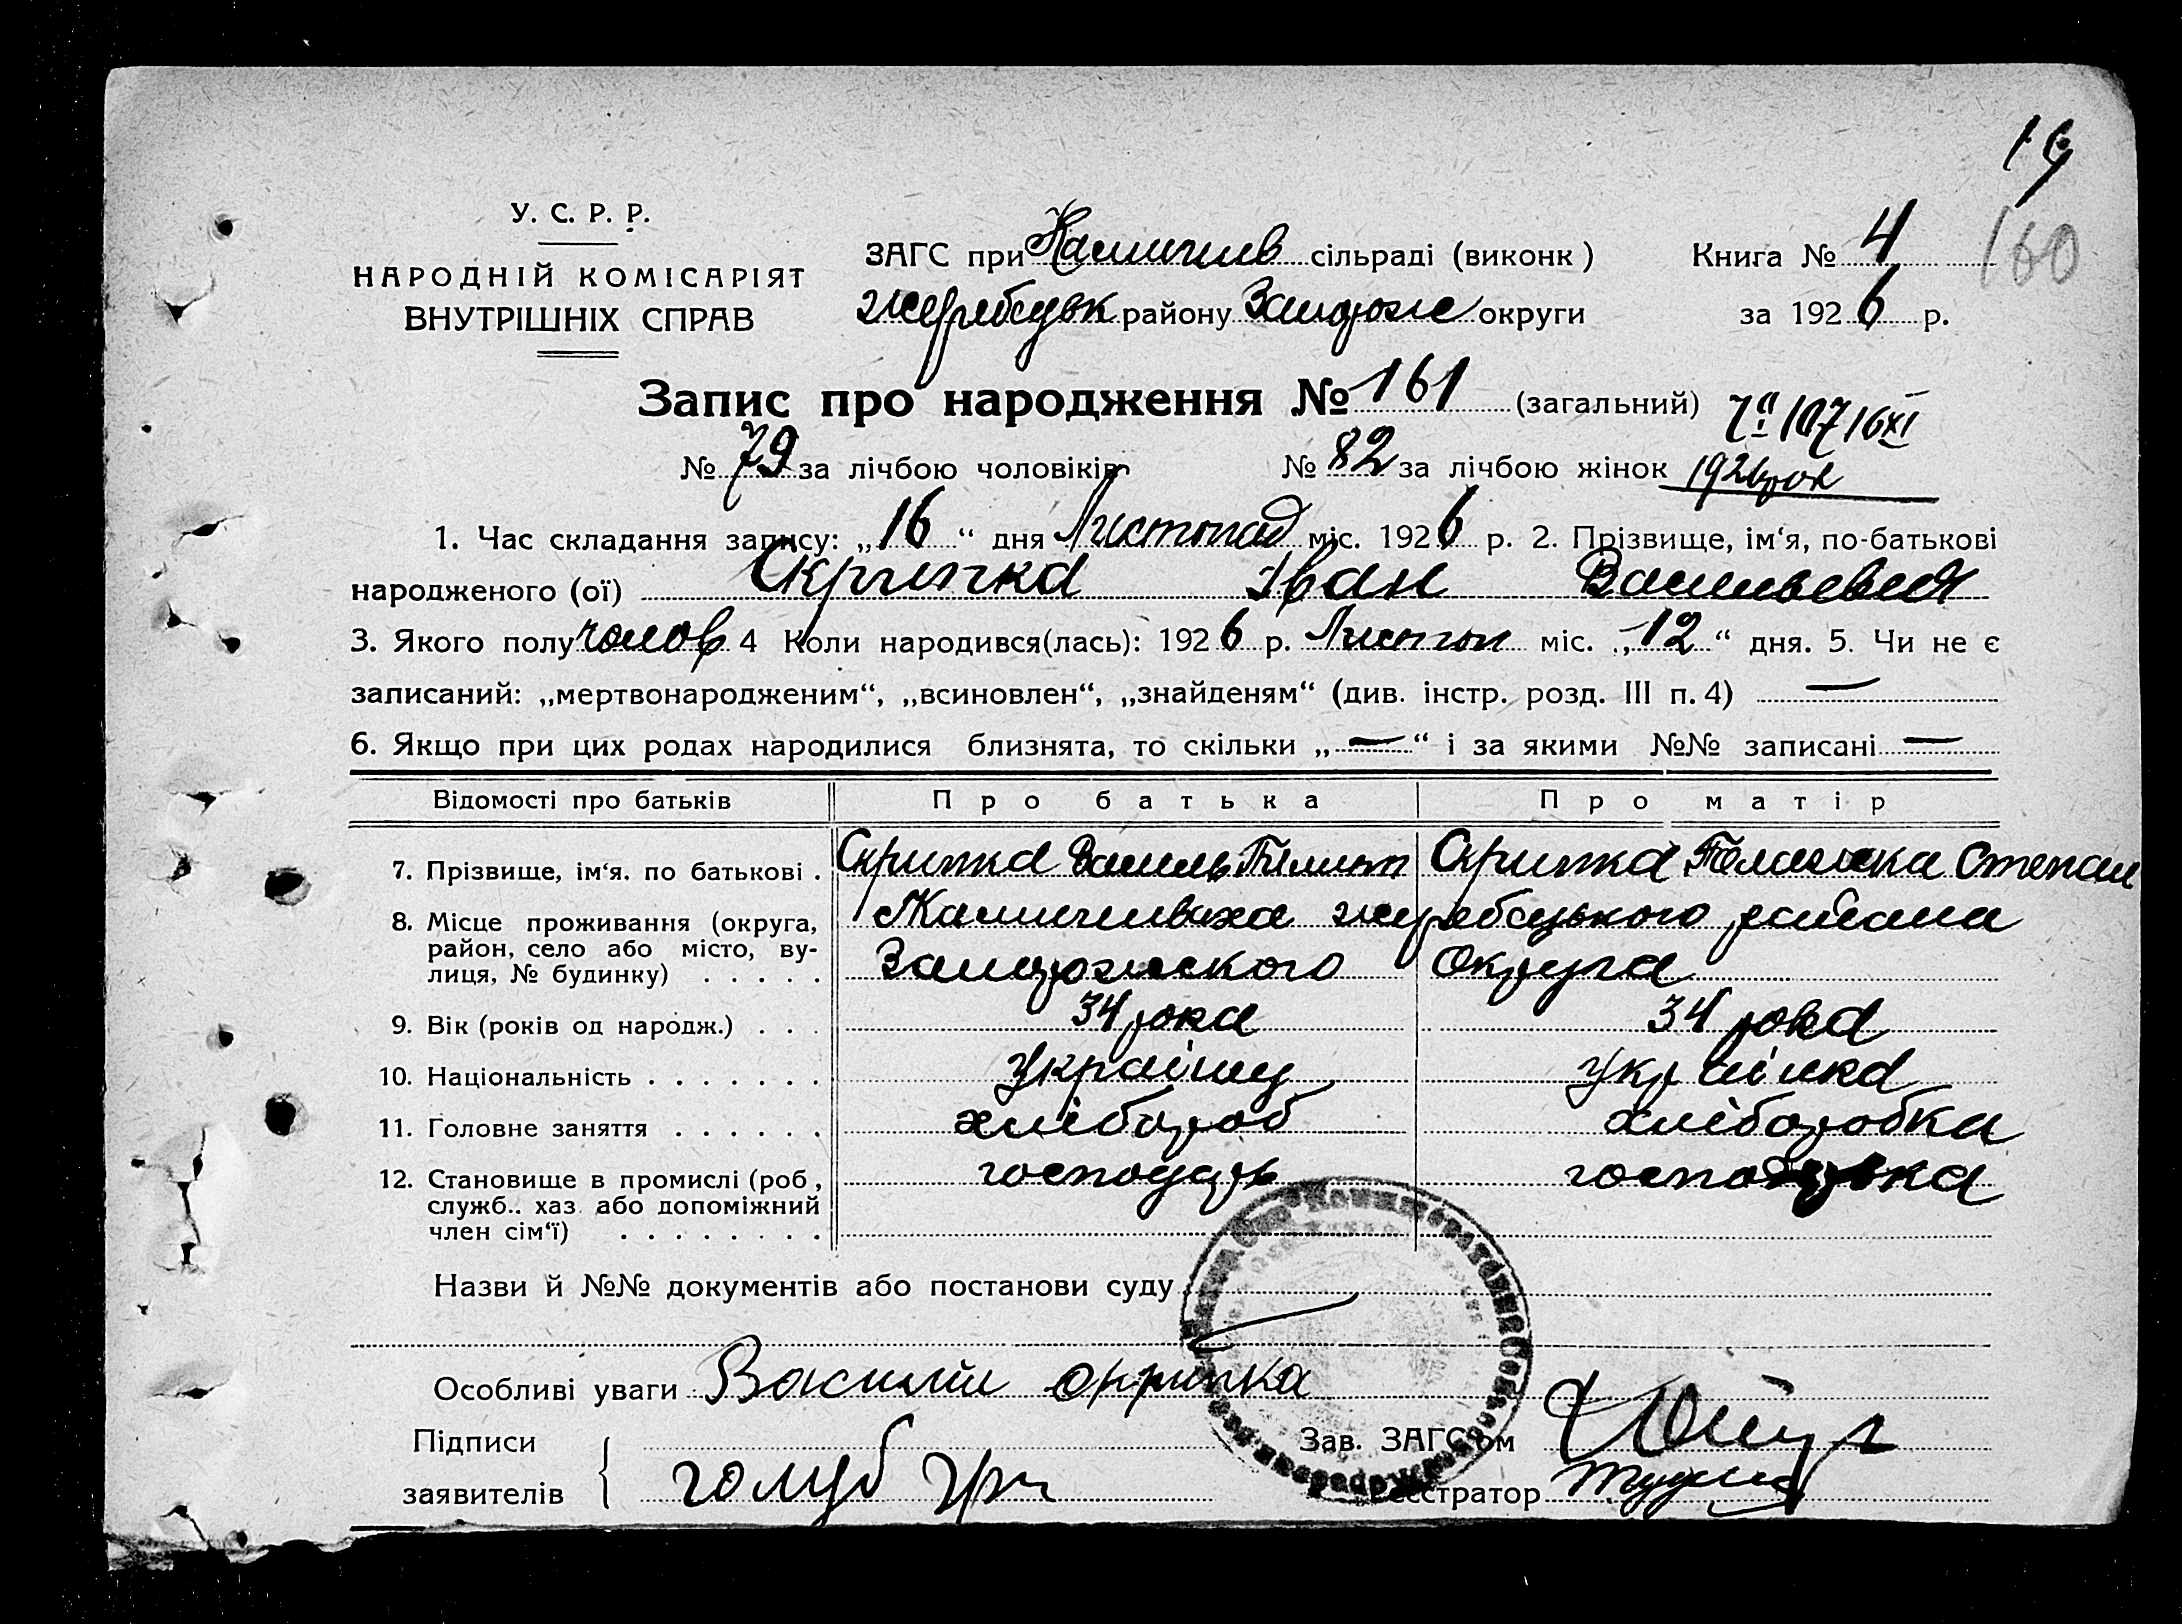 19
160
У. С. Р. Р.
НАРОДНІЙ КОМІСАРІЯТ
ВНУТРІШНІХ СПРАВ
ЗАГС при Камишив сільраді (виконк) Книга № 4
жеребецьк району Запорож округи за 1926 р.
Запис про народження № 161 (загальний)
№ 79 за лічбою чоловіків № 82 за лічбою жінок 1926 рок
1. Час складання запису: „16“ дня Листопад міс. 1926 р. 2. Прізвище, ім‘я, по-батькові
народженого (ої) Скрипка Іван Васильевич
3. Якого полу чолов 4 Коли народився(лась): 1926 р. Листоп міс. „12“ дня. 5. Чи не є
записаний: „мертвонародженим“, „всиновлен“, „знайденям“ (див. інстр. розд. III п. 4) —
6. Якщо при цих родах народилися близнята, то скільки „—“ і за якими №№ записані —
Відомості про батьків Про батька Про матір
7. Прізвище, ім‘я. по батькові . Скрипка Василь Скрипка Степан
8. Місце проживання (округа, район, село або місто, вулиця, № будинку) . . . . . Камишеваха жеребецького района
Запорожского Округа
9. Вік (років од народж.) . . . 34 рока 34 рока
10. Національність . . . . . . . Українц Українка
11. Головне заняття . . . . . . хлібороб хліборобка
12. Становище в промислі (роб, служб.. хаз. або допоміжний член сім‘ї) . . . . . . . . господарь господарка
Назви й №№ документів або постанови суду
Особливі уваги Василий скрипка
Підписи Зав. ЗАГС‘ом
заявителів голуб гри Реєстратор